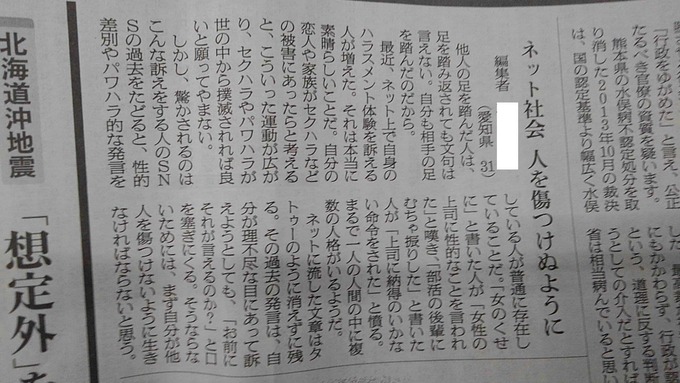 「行政をゆがめた」と言え、公正
たるべき官僚の資質を疑います。
熊本県の水俣病不認定処分を取
り消した2013年10月の裁決
は、国の認定基準より幅広く水俣
にもかかわらず、行政が
という、道理に反する判断
うとしての介入だとすれ
省は相当病んでいると思い
ネット社会 人を傷つけぬように
編集者
（愛知県 31）
他人の足を踏んだ人は、
足を踏み返されても文句は
言えない。自分も相手の足
を踏んだのだから。
最近、ネット上で自身の
ハラスメント体験を訴える
人が増えた。それは本当に
素晴らしいことだ。自分の
恋人や家族がセクハラなど
の被害にあったらと考える
と、こういった運動が広が
り、セクハラやパワハラが
世の中から撲滅されれば良
いと願ってやまない。
しかし、驚かされるのは
こんな訴えをする人のSN
Sの過去をたどると、性的
差別やパワハラ的な発言を
している人が普通に存在し
ていることだ。「女のくせ
に」と書いた人が「女性の
上司に性的なことを言われ
た」と嘆き、「部活の後輩に
むちゃ振りした」と書いた
人が「上司に納得のいかな
い命令をされた」と憤る。
まるで一人の人間の中に複
数の人格がいるようだ。
ネットに流した文章はタ
トゥーのように消えずに残
る。その過去の発言は、自
分が理不尽な目にあって訴
えようとしても、「お前に
それが言えるのか？」と口
を塞ぎにくる。そうならな
いためには、まず自分が他
人を傷つけないように生き
なければならないと思う。
北海道沖地震
「想定外」を